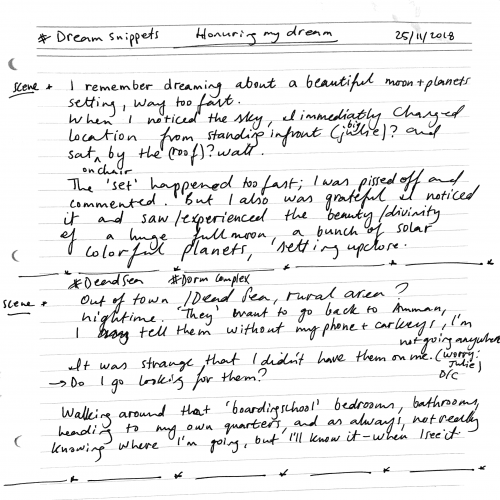 * Dream snippets Honuring my dream 25/11/2018
scene * I remember dreaming about a beautiful moon + planets
setting, way too fast.
When I noticed the sky, I immediatly changed
location from standing infront (big julie)? and
sat on chair by the (roof)? wall.
The 'set' happened too fast; I was pissed off and
commented. But I also was grateful I noticed
it and saw/experienced the beauty/divinity
of a huge full moon, a bunch of solar
colorful planets, 'setting upclose.
#DeadSea #Dorm Complex
scene * Out of town / Dead Sea, rural area?
nightime. 'They' want to go back to Amman,
I tell them without my phone + car keys, I'm
not going anywhere
It was strange that I didn't have them on me. (worry: Julie) D/C
→ Do I go looking for them?
Walking around that 'boardingschool' bedrooms, bathrooms,
heading to my own quarters, and as always, not really
knowing where I'm going, but I'll know it - when I see it